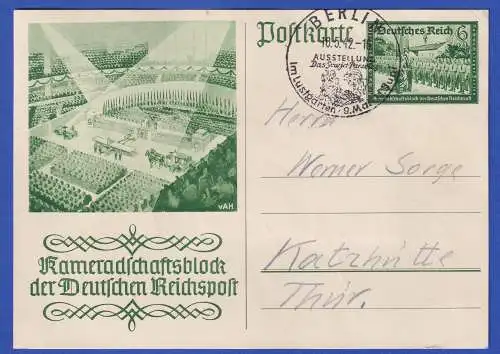 Postkarte
BERLIN
AUSSTELLUNG
Das Sowjet-Paradies
Im Lustgarten
Deutsches Reich 6
Kameradschaftsblock der Deutschen Reichspost
Herrn
Werner Sorge
Katzhütte
Thür.
vAH
Kameradschaftsblock
der Deutschen Reichspost